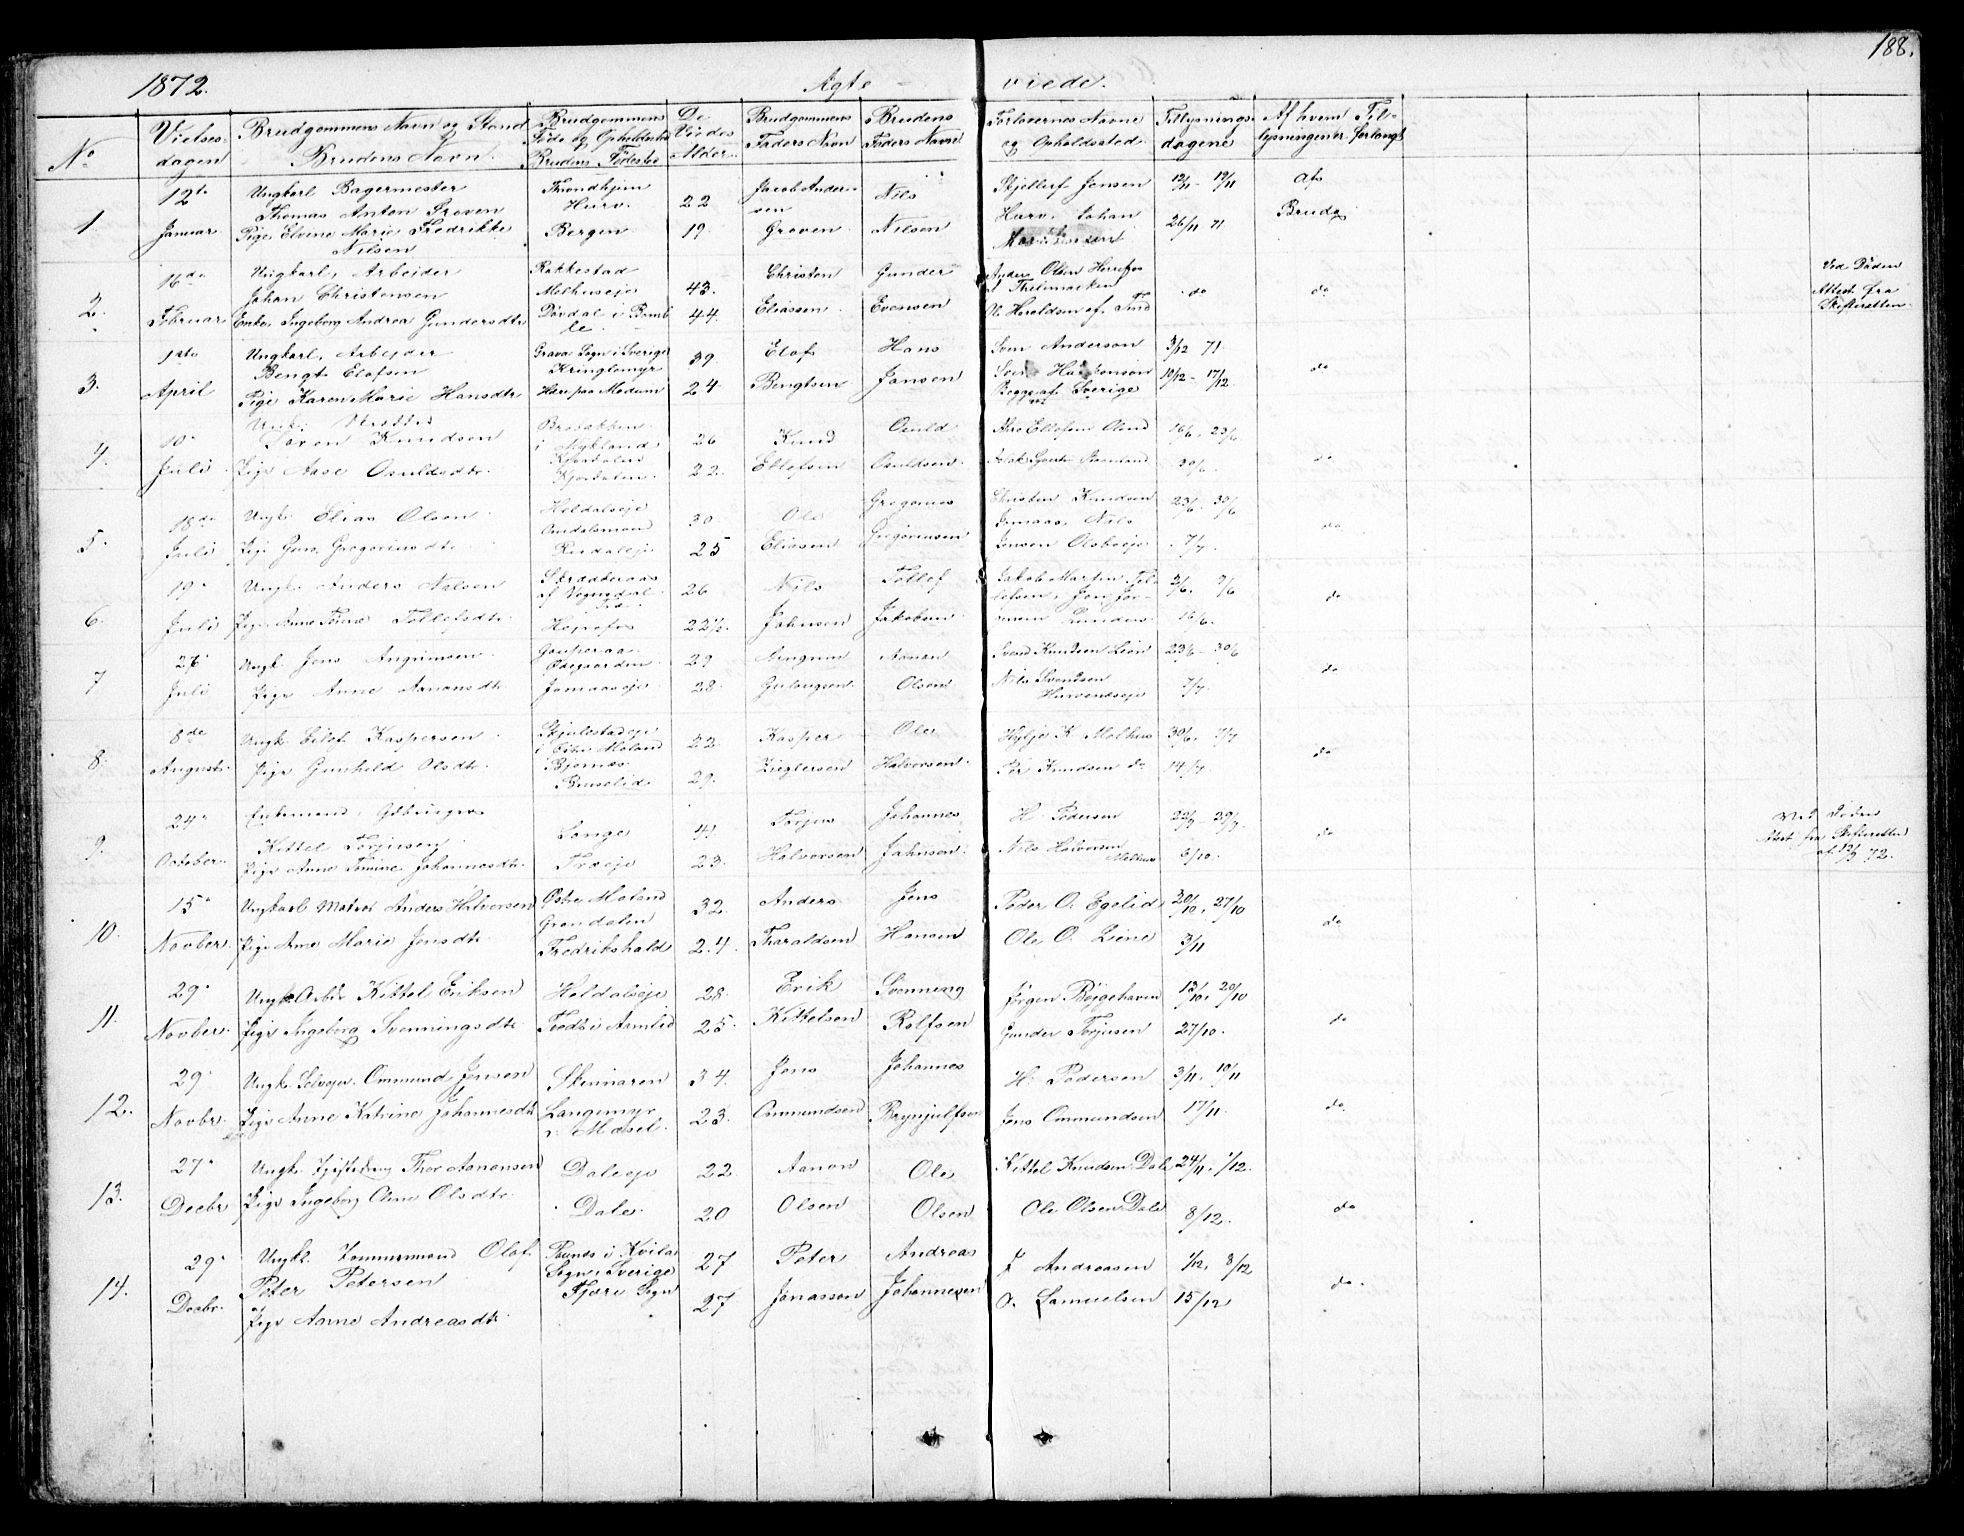 188.
1872. Ægte- viede.
No
Vielses-
dagen
Brudgommens Navn og Stand
Brudens Navn.
Brudgommens
Føde og Opholdssted
Brudens Fødested
De
Viedes
Alder.
Brudgommens
Faders Navn
Brudens
Faders Navn
Forlovernes Navne
og Opholdssted
Tillysnings-
dagene
Af hvem Til-
lysningen er forlangt
1. 12te Januar
Ungkarl Bagermester
Thomas Anton Groven
Pige Elvine Marie Fredrikke
Nilsen
Throndhjem
Hurv.
Bergen
22
19
Jacob Ander-
sen
Groven
Nils
Nilsen
Skjellef Jensen
Hurv. Johan
12/11 - 19/11
26/11 71
Afs
Brudg
2. 16de Februar
Ungkarl, Arbeider
Johan Christensen
Enke, Ingeborg Andrea Gundersdtr
Rakkestad
Melhuseje
Dovdal i Bamb
le
43.
44.
Christen
Eliassen
Gunder
Evensen
Anders Olsen Herrefos
O. Haraldsen af
do
do
Ved Døden
Attest fra
Skifteretten.
3. 1ste April
Ungkarl, Arbejder
Bengt Elofsen
Pige Karen Marie Hansdtr
Grava Sogn i Sverige
Kringlemyr
Here paa Modum
39.
24.
Elof
Bengtsen
Hans
Jansen
Sven Anderson
Sven
Begge af Sverige
3/12 71.
10/12 - 17/12.
do
4. 10. Juli
Ungk.
Søren Knudsen
Pige Aase Osuldsdtr.
i Mykland
26
22.
Knud
Ellefsen
Osuld
Osuldsen.
16/6, 23/6
30/6
do
5. 18de Juli
Ungk. Elias Olsen
Pige Gun. Gregoriusdtr.
Heldalseje
30.
25
Ole
Eliasen
Gregorius
Gregoriusen
Christen Knudsen
Jomaas, Nils
Jensen Olsbueje
23/6. 30/6
7/7.
do
6. 19. Juli
Ungk. Anders Nilsen
Pige Anne Tomine Tollefsdtr.
26
22½.
Nils
Jahnsen
Tollef
Jakobsen
Jakob Martin Tol-
lefsen, Jens Jør-
2/6. 9/6
16/6.
do
7 26. Juli
Ungk. Jens Angrimsen
Pige Anne Aanonsdtr.
Gauperaa
Ødegaarden
Jomaaseje
29
28.
Arngrim
Gulougsen.
Aanon
Olsen
Svend Knudsen Lien
Nils Svendsen
Hurvendseje
23/6 - 30/6
7/7.
do
8. 8de August
Ungk. Eilef Kaspersen
Pige Gunhild Olsdtr.
Skjulestadeje
i Østre Moland
Bjornes
Bruselid
22.
29.
Kasper
Zieglersen
Ole
Halvorsen.
K. Melhus
Per Knudsen do
30/6. 7/7
14/7.
do
9. 24. October.
Enkemand,
Kittel Torjusen
Pige Anne Tomine Johannesdtr.
Songe
Træeje
41.
23.
Torjus
Halvorsen
Johannes
Jahnsen.
H. Pedersen
Nils Halvorsen
Melhus
22/9 29/9.
6/10.
do
Ved Døden
Attest fra Skifteretten
af 12/9 72.
10. 15. Novber.
Ungkarl Matros Anders Halvorsen
Pige Ane Marie Jensdtr.
Østre Moland
Grøndalen
Fredrikshald
32.
24.
Anders
Tharaldsen
Jens
Hansen
Peder O. Egelid
Ole O. Liene
20/10, 27/10
3/11
do
11. 29. Novber.
Ungk. Arbdr Kittel Eriksen
Pige Ingeborg Svenningsdtr.
Heldalseje
Tvedt i Aamlid
28.
25.
Erik
Kittelsen
Svenning
Rolfsen
Jørgen Bøjgehaven
Gunder Torjusen
13/10. 20/10
27/10.
do
12. 29. Novbr.
Ungk. Selveje. Ommund Jensen
Pige Anne Katrine Johannesdtr
Skeimaren
Langemyr
v. Mæsel.
34.
23.
Jens
Ommundsen
Johannes
Brynjulfsen
H. Pedersen
Jens Ommundsen
3/11. 10/11
17/11.
do
13. 27. Decbr
Ungk. Thor Aanonsen
Pige Ingeborg Oline Olsdtr.
Daleeje
Dale
22
20
Aanon
Olsen
Ole
Olsen
Kittel Knudsen Dale
Ole Olsen Dale
24/11. 1/12.
8/12.
do
14. 29. Decbr.
Ungk. Tømmermand Olof
Peter Petersen
Pige Aasne Andreasdtr.
i Kvile
Sogn i Sverige
Fjære Sogn
27
27
Peter
Jonasson
Andreas
Johannesen
J. Andreasen
O. Samuelsen
1/12. 8/12
15/12
do.